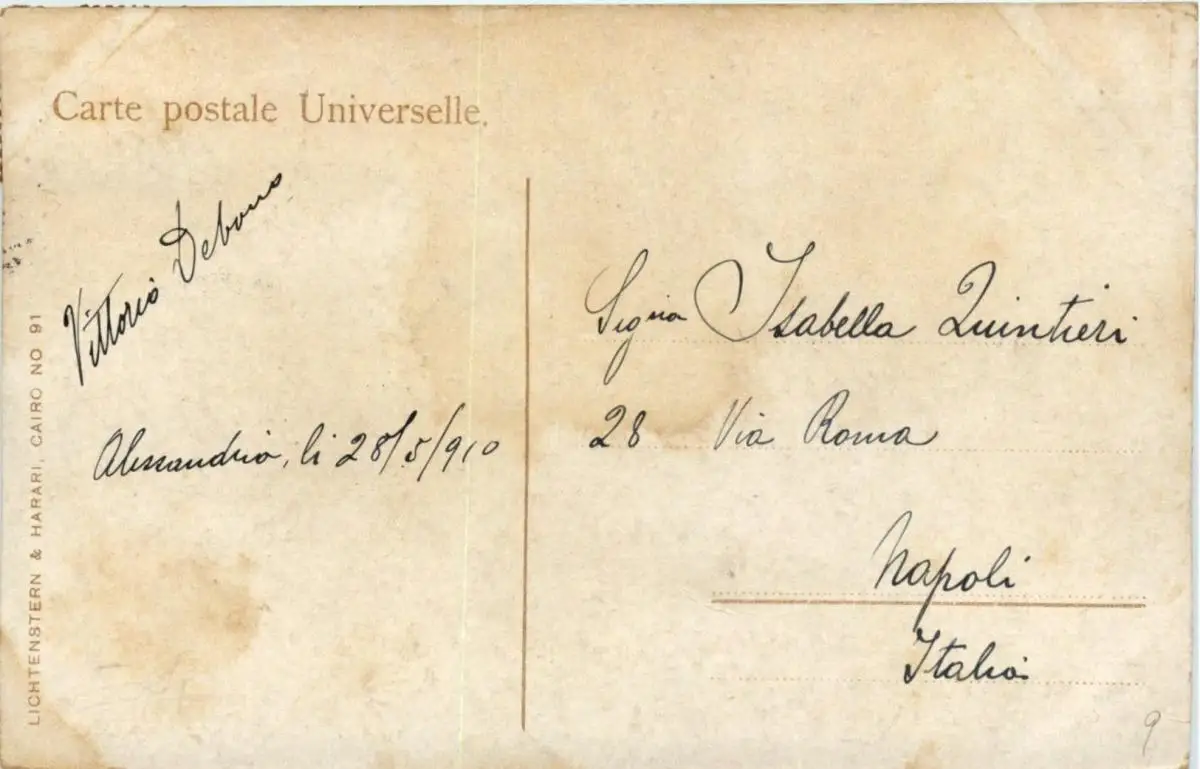 Carte postale Universelle.
Vittorio Debono
Alessandria, li 28/5/910
LICHTENSTERN & HARARI, CAIRO NO 91
Sigria Isabella Quintieri
28 Via Roma
Napoli
Italia
9